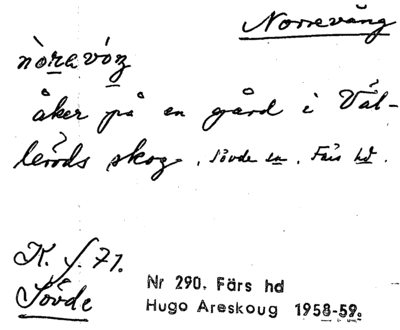 Norrevång
nòrevóŋ
åker på en gård i Väl-
leröds skog. Sövde sn. Färs hd.
K. J. 71.
Sövde
Nr 290. Färs hd
Hugo Areskoug 1958-59.